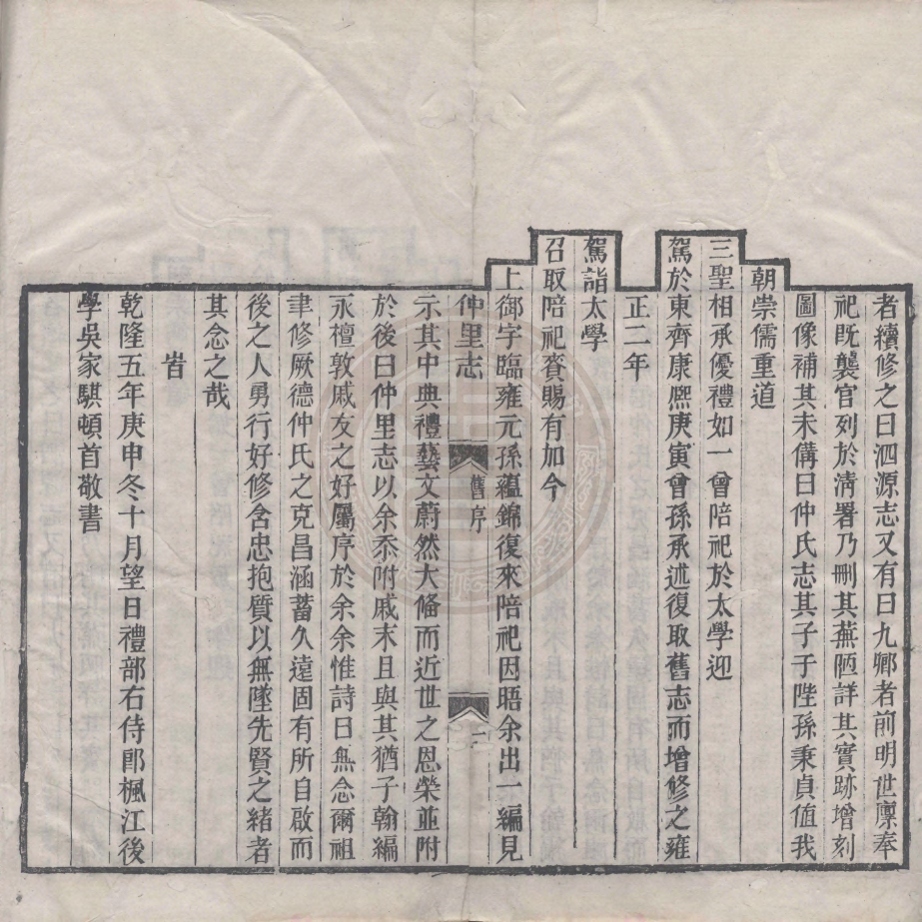 者續修之曰泗源志又有曰九卿者前明世廩奉
祀既襲官列於清署乃刪其蕪陋詳其實跡增刻
圖像補其未備曰仲氏志其子于陛孫秉貞值我
朝崇儒重道
三聖相承優禮如一曾陪祀於太學迎
駕於東齊康熙庚寅曾孫承述復取舊志而增修之雍
正二年
駕詣太學
召取陪祀賚賜有加今
上御宇臨雍元孫蘊錦復來陪祀因晤余出一編見
仲里志
舊序
二
示其中典禮藝文蔚然大備而近世之恩榮並附
於後曰仲里志以余忝附戚末且與其猶子翰編
永檀敦戚友之好屬序於余余惟詩曰無念爾祖
聿修厥德仲氏之克昌涵蓄久遠固有所自啟而
後之人勇行好修含忠抱質以無墜先賢之緒者
其念之哉
旹
乾隆五年庚申冬十月望日禮部右侍郎楓江後
學吳家騏頓首敬書